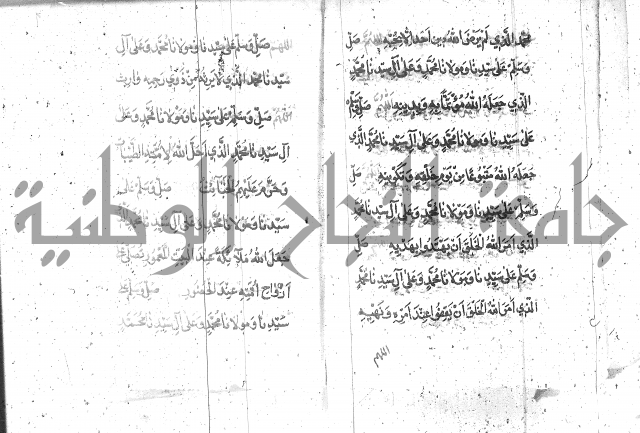 محمد الذي لم يرض الله من أحد إلا حبه اللهم صل
وسلم على سيدنا ومولانا محمد وعلى آل سيدنا محمد
الذي جعله الله مؤتما به وبدينه اللهم صل وسلم
على سيدنا ومولانا محمد وعلى آل سيدنا محمد الذي
جعله الله متبوعا من يوم خلقه وتكوينه صل
وسلم على سيدنا ومولانا محمد وعلى آل سيدنا محمد
الذي أمر الله الخلق أن يقتدوا بهديه صل
وسلم على سيدنا ومولانا محمد وعلى آل سيدنا محمد
الذي أمر الله الخلق أن يقفوا عند أمره ونهيه
اللهم صل وسلم على سيدنا ومولانا محمد وعلى آل
سيدنا محمد الذي من ذوي رحمه
اللهم صل وسلم على سيدنا ومولانا محمد وعلى
آل سيدنا محمد الذي أحل الله لأمته الطيبات
وحرم عليهم الخبائث صل وسلم على
سيدنا ومولانا محمد وعلى آل سيدنا محمد
جعل الله ملائكة عند البيت المعمور
أرواح أمته عند صل وسلم على
سيدنا ومولانا محمد وعلى آل سيدنا محمد
جامعة النجاح الوطنية